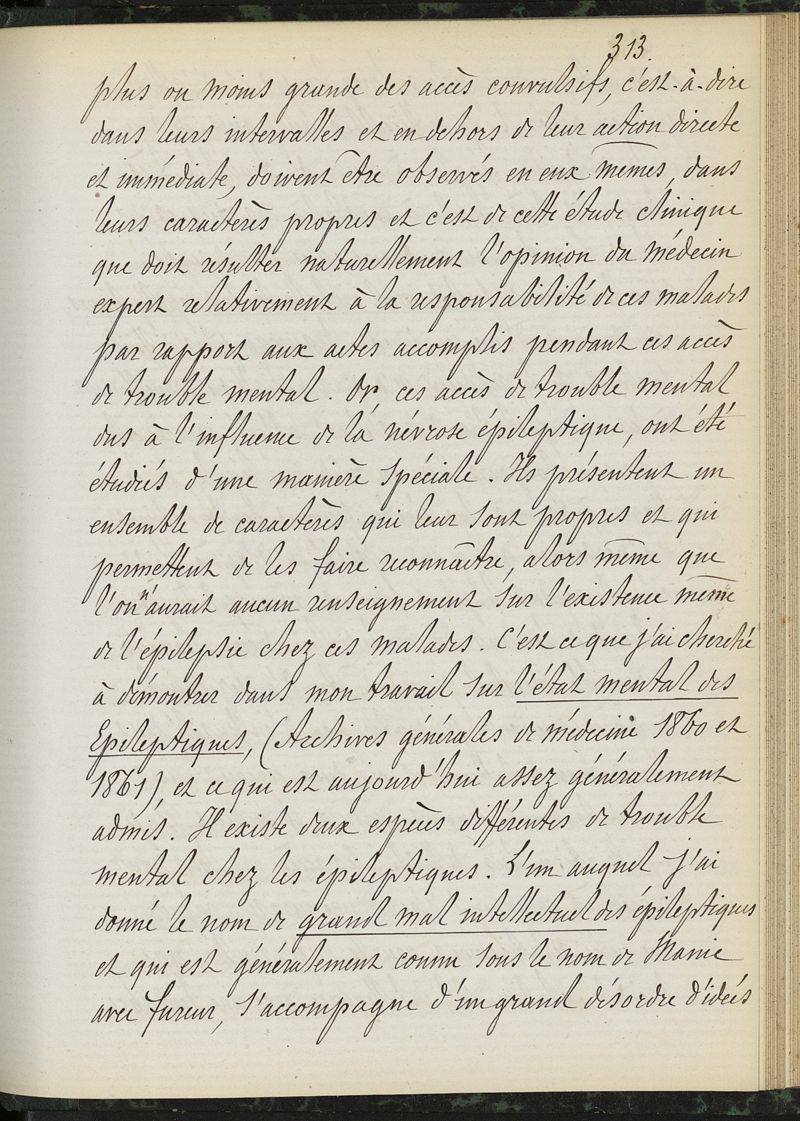 313.
plus ou moins grande des accès convulsifs, c'est-à-dire
dans leurs intervalles et en dehors de leur action directe
et immédiate, doivent être observés en eux mêmes, dans
leurs caractères propres et c'est de cette étude clinique
que doit résulter naturellement l'opinion du médecin
expert relativement à la responsabilité de ces malades
par rapport aux actes accomplis pendant ces accès
de trouble mental. Or, ces accès de trouble mental
dus à l'influence de la névrose épileptique, ont été
étudiés d'une manière spéciale. Ils présentent un
ensemble de caractères qui leur sont propres et qui
permettent de les faire reconnaître, alors même que
l'on n'aurait aucun renseignement sur l'existence même
de l'épilepsie chez ces malades. C'est ce que j'ai cherché
à démontrer dans mon travail sur l'état mental des
Epileptiques, (Archives générales de médecine 1860 et
1861), et ce qui est aujourd'hui assez généralement
admis. Il existe deux espèces différentes de trouble
mental chez les épileptiques. L'un auquel j'ai
donné le nom de grand mal intellectuel des épileptiques
et qui est généralement connu sous le nom de Manie
avec fureur, s'accompagne d'un grand désordre d'idées